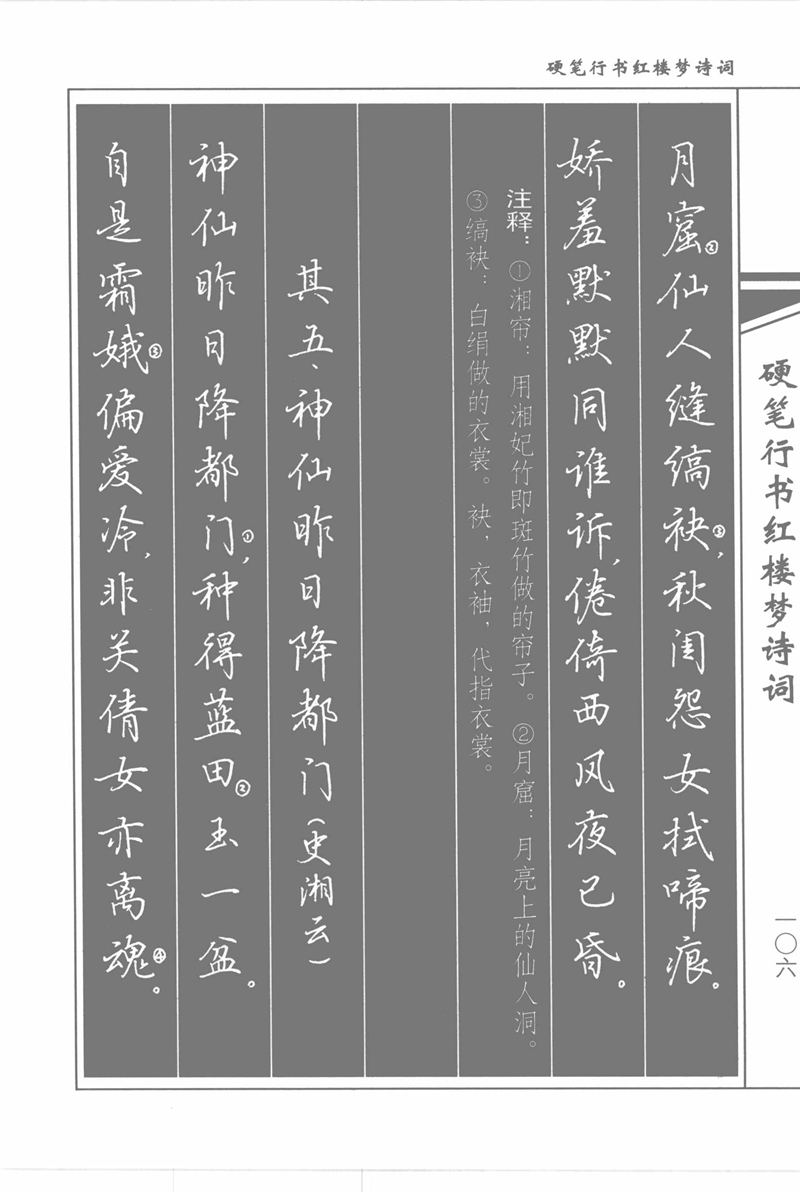 硬笔行书红楼梦诗词
月窟②仙人缝缟袂③，秋闺怨女拭啼痕。
娇羞默默同谁诉，倦倚西风夜已昏。
注释：①湘帘：用湘妃竹即斑竹做的帘子。②月窟：月亮上的仙人洞。
③缟袂：白绢做的衣裳。袂，衣袖，代指衣裳。
其五、神仙昨日降都门（史湘云）
神仙昨日降都门①，种得蓝田②玉一盆。
自是霜娥③偏爱冷，非关倩女亦离魂④。
硬笔行书红楼梦诗词
一〇六